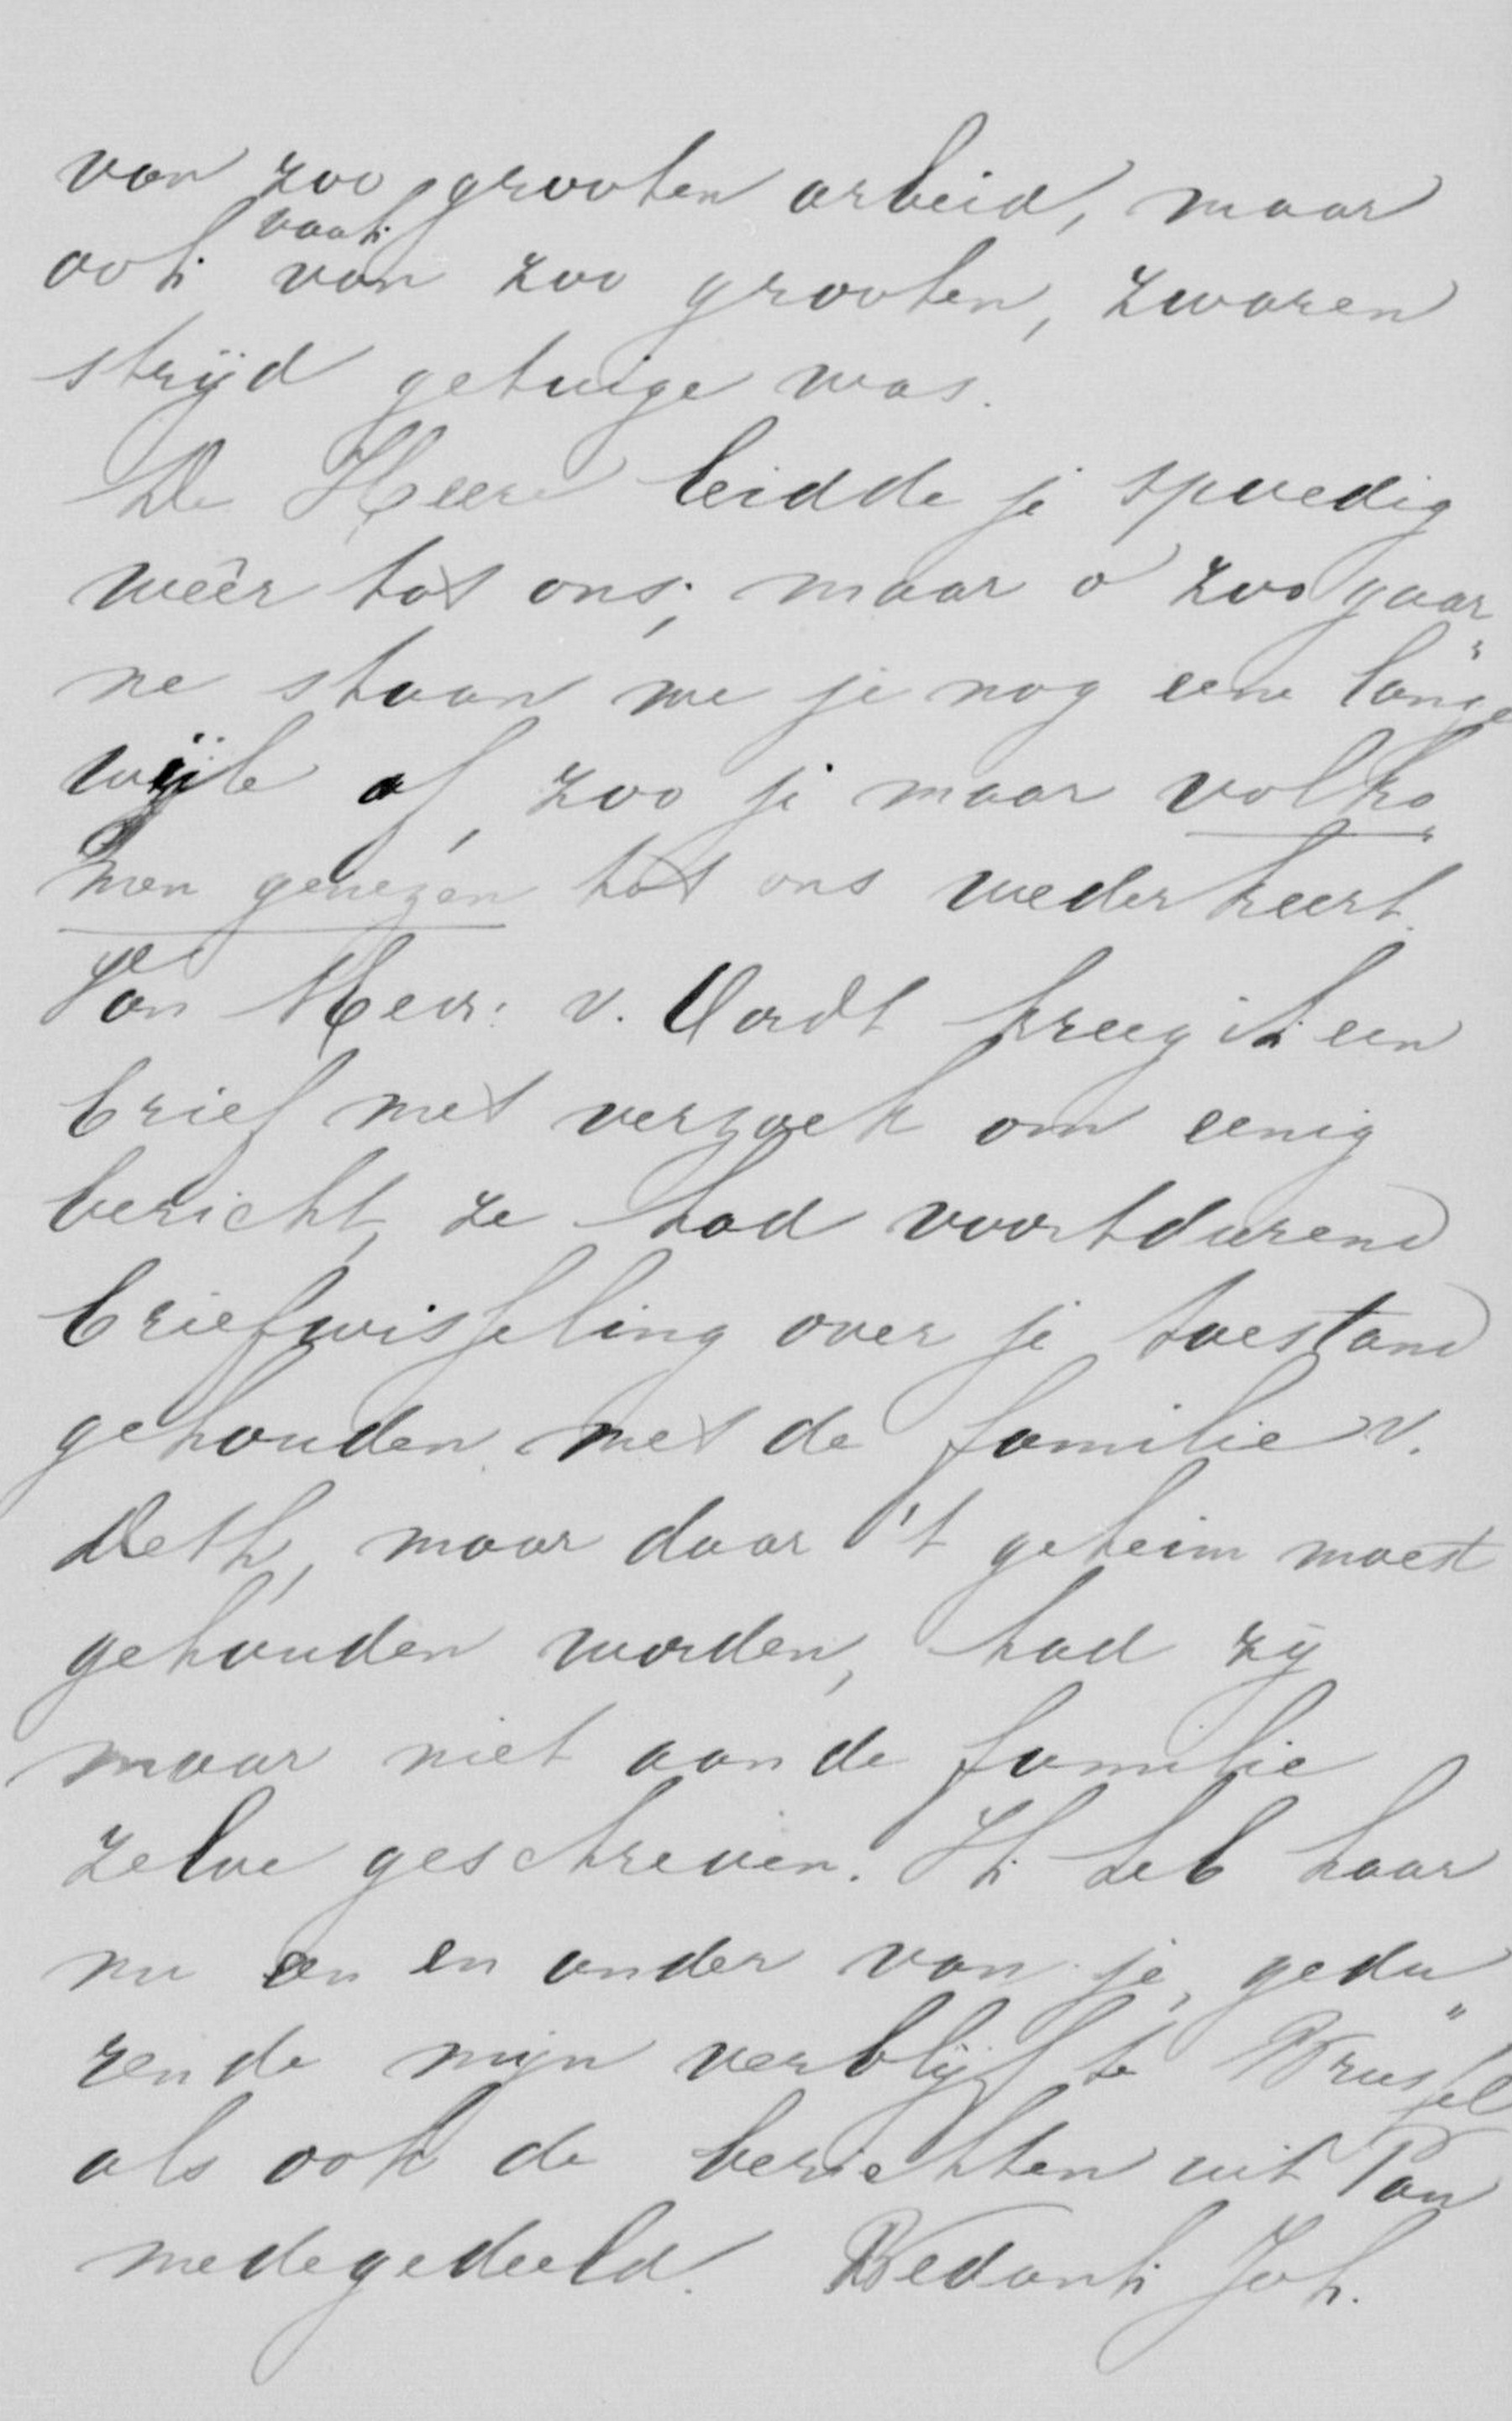 van zoo grooten arbeid, maar
ook vaak van zoo grooten, zwaren
strijd getuige was.
De Heere leidde je spoedig
weêr tot ons; maar o zoo gaar„
ne staan we je nog eene lange
wijle af, zoo je maar volko„
men genezen tot ons wederkeert.
Van Mevr: v. Oordt kreeg ik een
brief met verzoek om eenig
bericht, ze had voortdurend
briefwisseling over je toestand
gehouden met de familie v.
Deth, maar daar 't geheim moest
gehouden worden, had zij
maar niet aan de familie
zelve geschreven. Ik heb haar
nu een en ander van je, gedu„
rende mijn verblijf te Brussel
als ook de berichten uit Pau
medegedeeld. Bedank Joh.